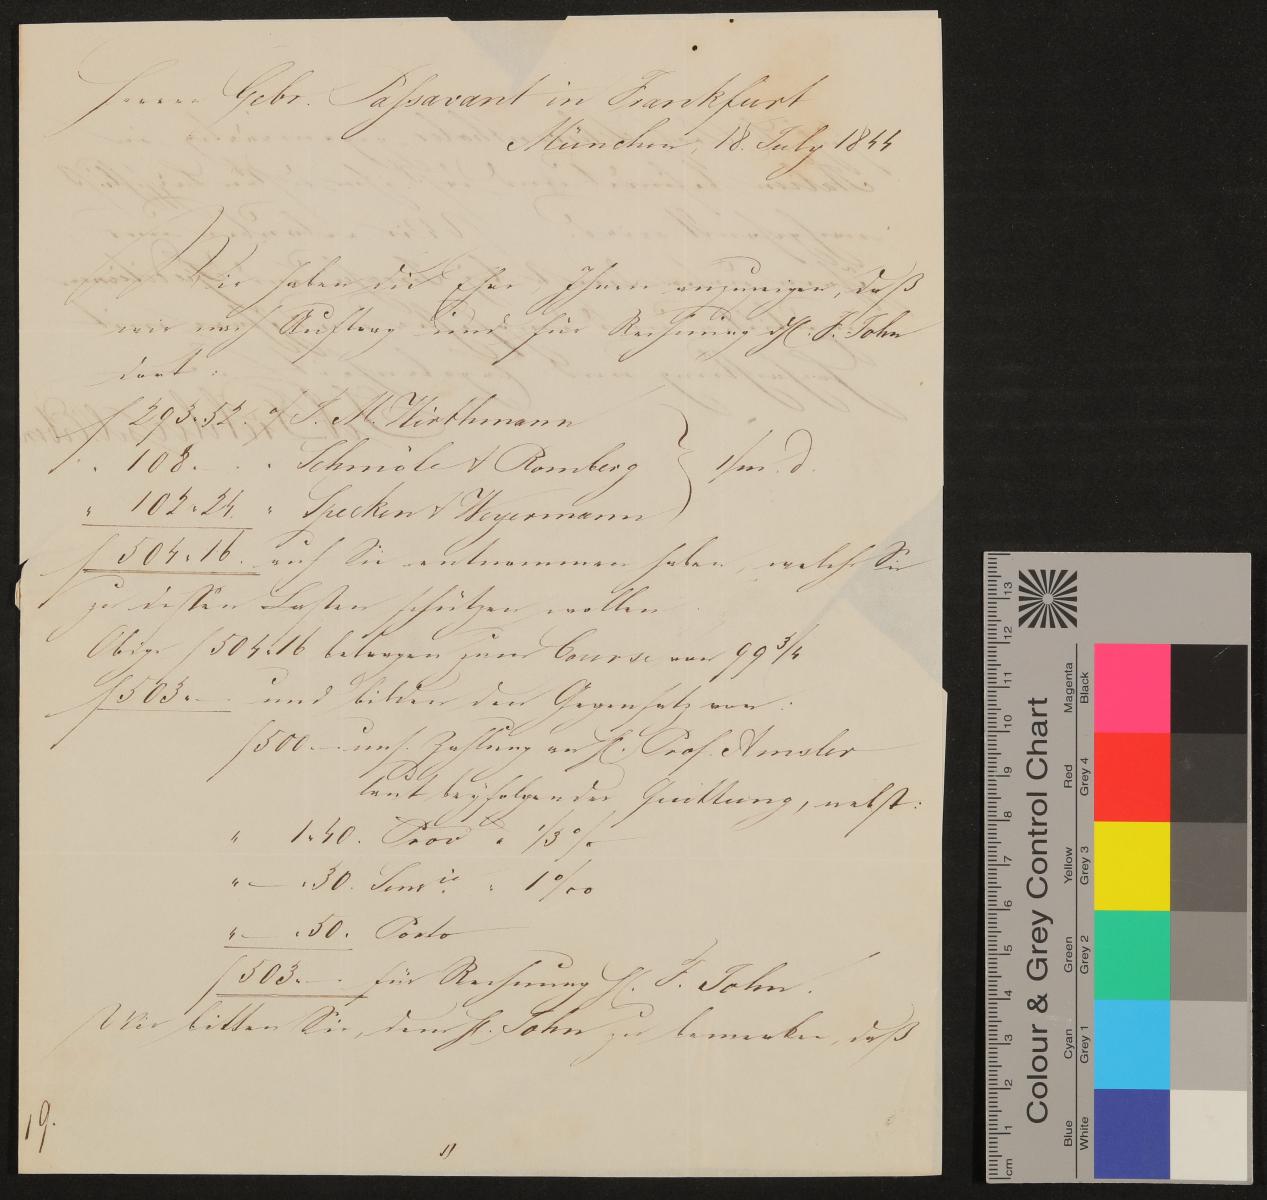 Herren Gebr. Passavant in Frankfurt
München, 18. July 1844
Wir haben die Ehre Ihnen anzuzeigen, daß
wir nach Auftrag und für Rechnung H. F. John
dort:
f 293.52. a/ J. M. Wirthmann
" 108.- . " Schmöle & Romberg 1/m. d.
" 102.24. " Specken & Weyermann
f 504.16. auf Sie entnommen haben, welche Sie
zu dessen Lasten schützen wollen.
Obige f 504.16 betragen zum Course von 99 3/4
f 503.- und bilden den Gegensatz von:
f 500.- uns. Zahlung an H. Prof. Amsler
laut beyfolgender Quittung, nebst:
" 1.40. Prov. a 1/3 %
" - .30. Sens ie. " 1 ‰
" - .50. Porto
f 503.- . für Rechnung H. F. John.
Wir bitten Sie, dem H. John zu bemerken, daß
19.
Colour & Grey Control Chart
Blue Cyan Green Yellow Red Magenta
White Grey 1 Grey 2 Grey 3 Grey 4 Black
cm 1 2 3 4 5 6 7 8 9 10 11 12 13